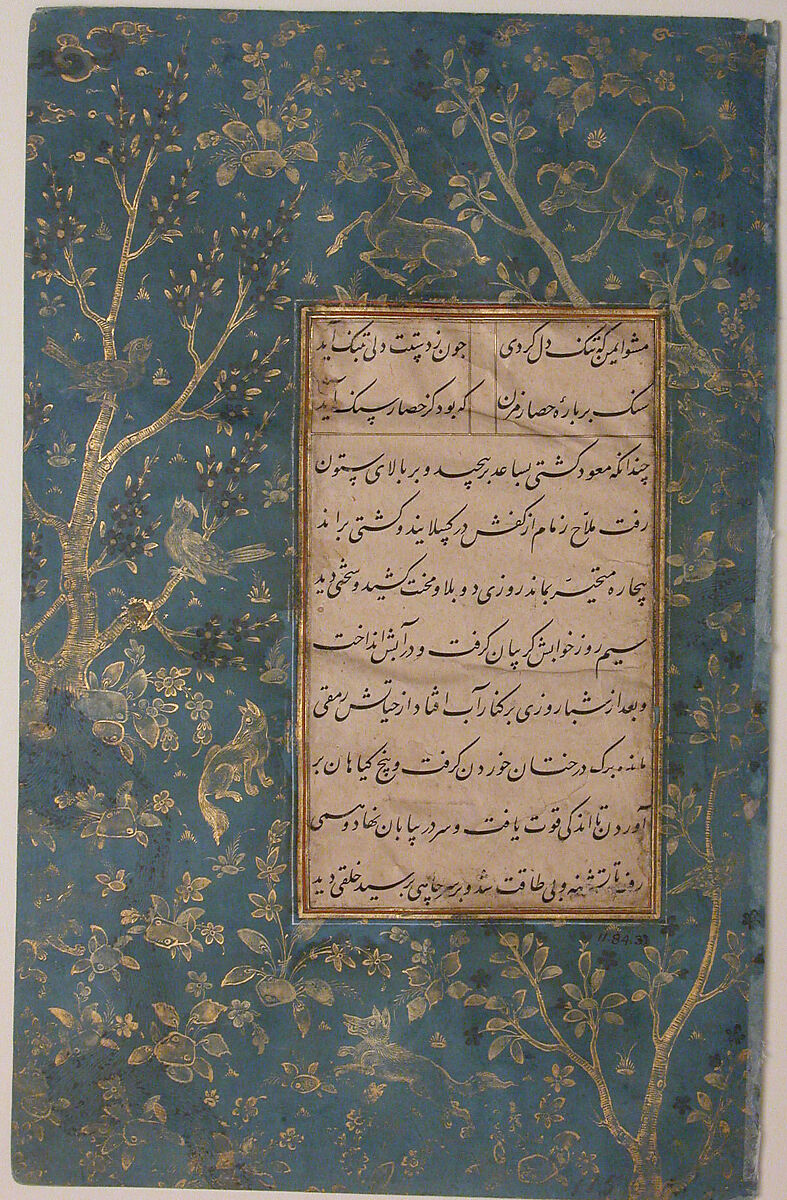 مشو ایمن که تنک دل کردی چون ز دستت دلی بتنک آید
سنک بر بارهٔ حصار مزن که بود کز حصار سنک آید
چندانکه مقود کشتی بساعد برپیچید و بر بالای ستون
رفت ملاح زمام از کفش درکسلانید و کشتی براند
بیچاره متحیّر بماند روزی دو بلا و محنت کشید و سختی دید
سیم روز خوابش کریبان کرفت و در آبش انداخت
و بعد از شبانروزی بر کنار آب افتاد از حیاتش رمقی
مانده برک درختان خوردن کرفت و بیخ کیاهان بر
آوردن تا اندکی قوت یافت و سر در بیابان نهاد و همی
رفت تا تشنه و بی طاقت شد و بر سر چاهی رسید خلقی دید
11.84.3